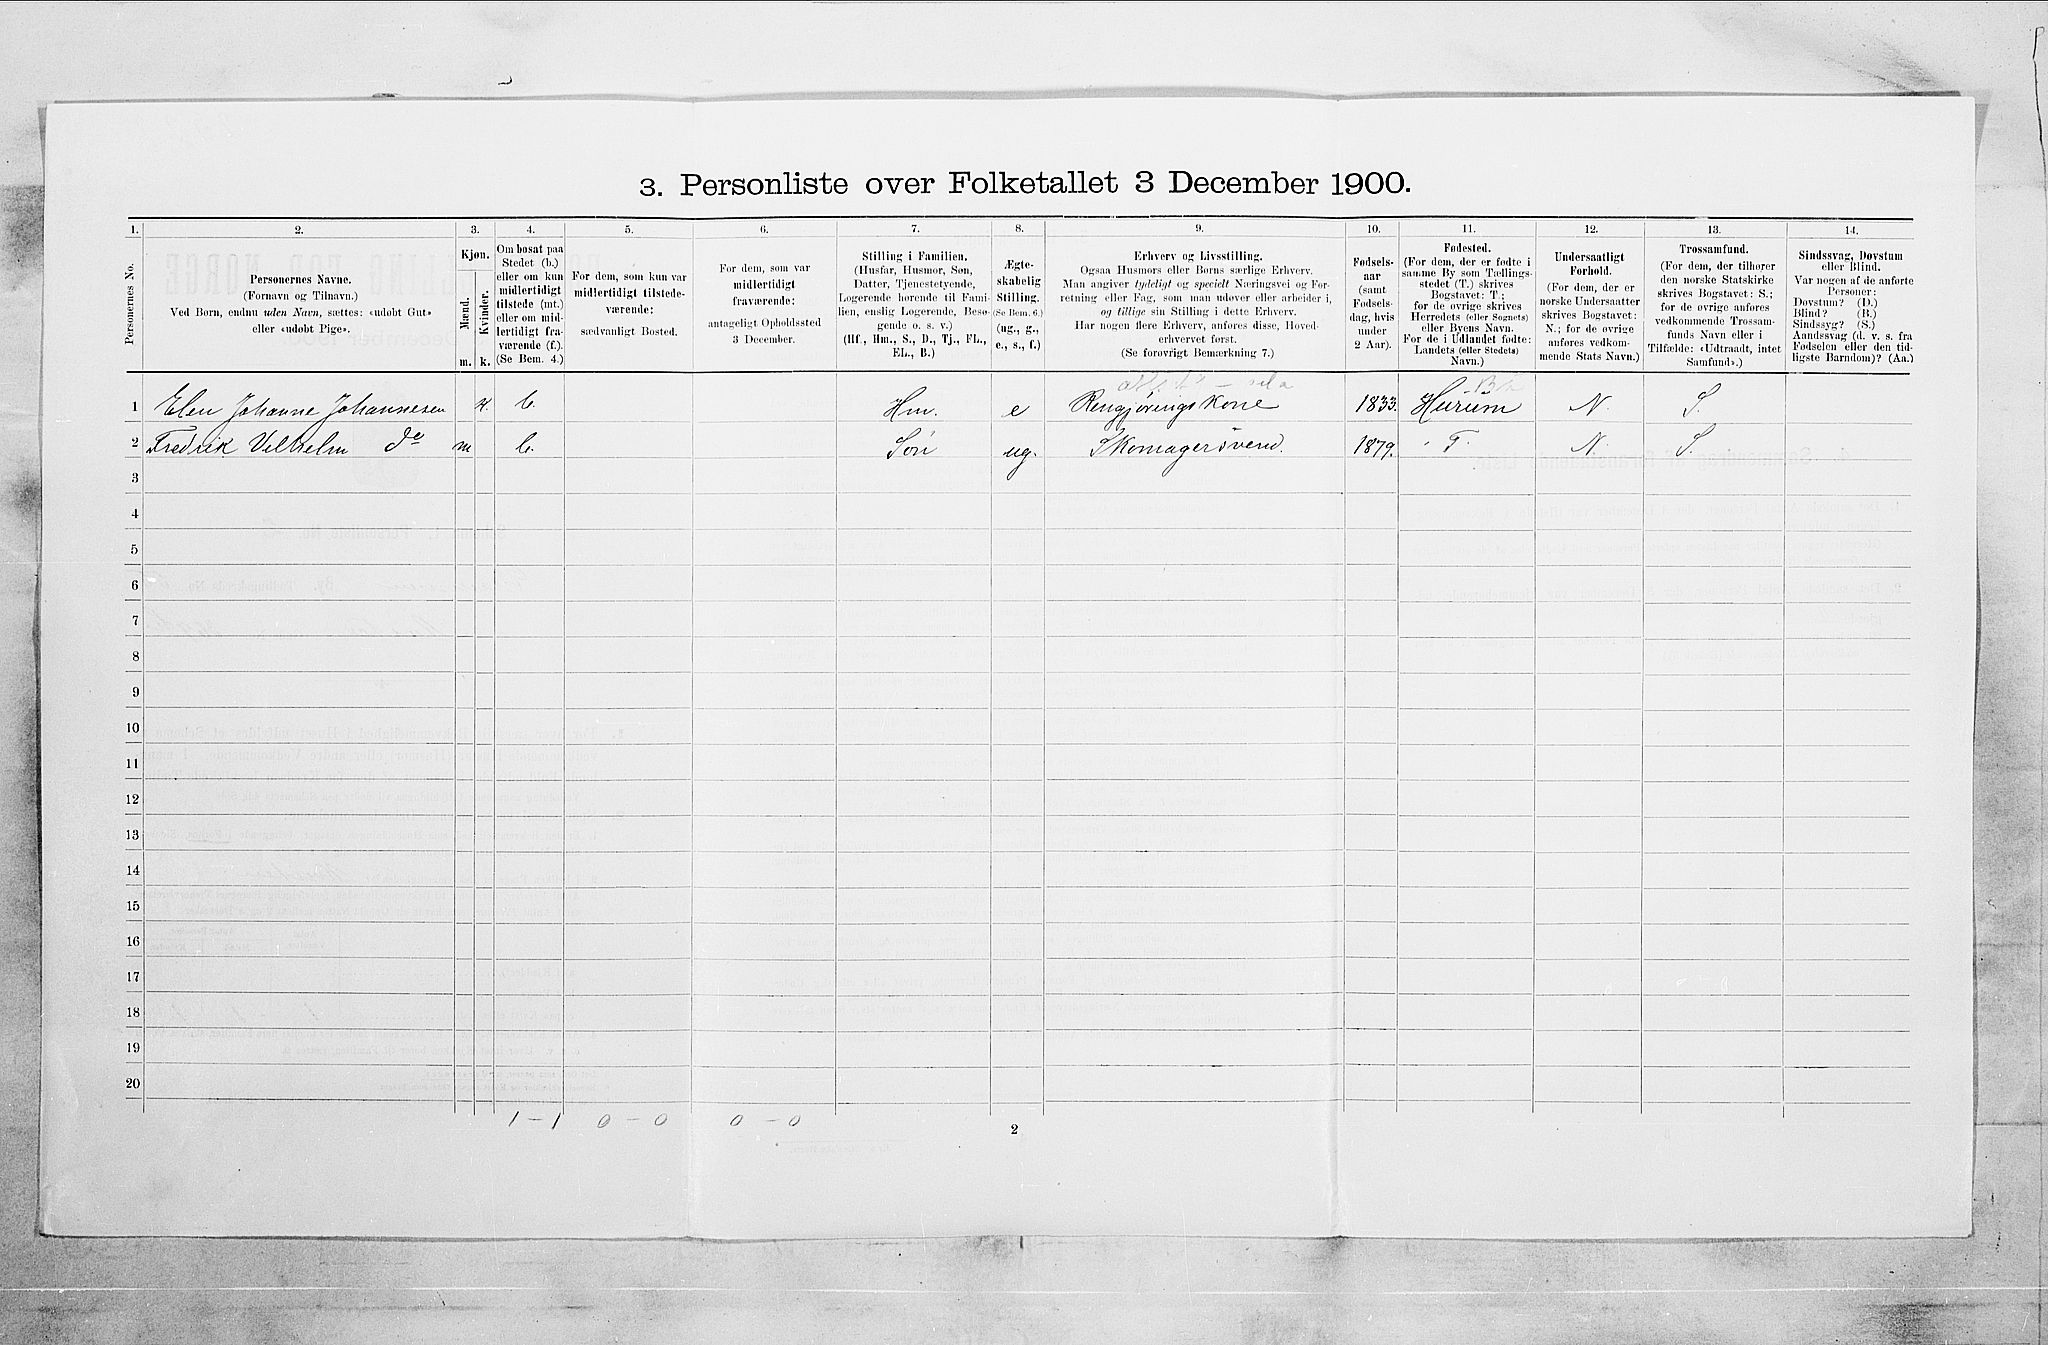 3. Personliste over Folketallet 3 December 1900.
1. 2. 3. 4. 5. 6. 7. 8. 9. 10. 11. 12. 13. 14.
Personernes No.
Personernes Navne.
(Fornavn og Tilnavn.)
Ved Børn, endnu uden Navn, sættes: «udøbt Gut»
eller «udøbt Pige».
Kjøn.
Mænd.
Kvinder.
m. k.
Om bosat paa
Stedet (b.)
eller om kun
midlertidigt
tilstede (mt.)
eller om mid-
lertidigt fra-
værende (f.).
(Se Bem. 4.)
For dem, som kun var
midlertidigt tilstede-
værende:
sædvanligt Bosted.
For dem, som var
midlertidigt
fraværende:
antageligt Opholdssted
3 December.
Stilling i Familien.
(Husfar, Husmor, Søn,
Datter, Tjenestetyende,
Logerende hørende til Fami-
lien, enslig Logerende, Besø-
gende o. s. v.)
(Hf., Hm., S., D., Tj., FL.,
EL., B.)
Ægte-
skabelig
Stilling.
(Se Bem. 6.)
(ug., g.,
e., s., f.)
Erhverv og Livsstilling.
Ogsaa Husmors eller Børns særlige Erhverv.
Man angiver tydeligt og specielt Næringsvei og For-
retning eller Fag, som man udøver eller arbeider i,
og tillige sin Stilling i dette Erhverv.
Har nogen flere Erhverv, anføres disse, Hoved-
erhvervet først.
(Se forøvrigt Bemærkning 7.)
Fødsels-
aar
(samt
Fødsels-
dag, hvis
under
2 Aar).
Fødested.
(For dem, der er fødte i
samme By som Tællings-
stedet (T.) skrives
Bogstavet: T.;
for de øvrige skrives
Herredets (eller Sognets)
eller Byens Navn.
For de i Udlandet fødte:
Landets (eller Stedets)
Navn.)
Undersaatligt
Forhold.
(For dem, der er
norske Undersaatter
skrives Bogstavet:
N.; for de øvrige
anføres vedkom-
mende Stats Navn.)
Trossamfund.
(For dem, der tilhører
den norske Statskirke
skrives Bogstavet: S.;
for de øvrige anføres
vedkommende Trossam-
funds Navn eller i
Tilfælde: «Udtraadt, intet
Samfund».)
Sindssvag, Døvstum
eller Blind.
Var nogen af de anførte
Personer:
Døvstum? (D.)
Blind? (B.)
Sindssyg? (S.)
Aandssvag (d. v. s. fra
Fødselen eller den tid-
ligste Barndom)? (Aa.)
1 Elen Johanne Johannesen k. b. Hm. e Rengjøringskone 1833. Hurum N. S.
2 Fredrik Vilhelm do m b. Søn ug. Skomagersvend. 1879. T. N. S.
3
4
5
6
7
8
9
10
11
12
13
14
15
16
17
18
19
20
1 - 1 0 - 0 0 - 0
2